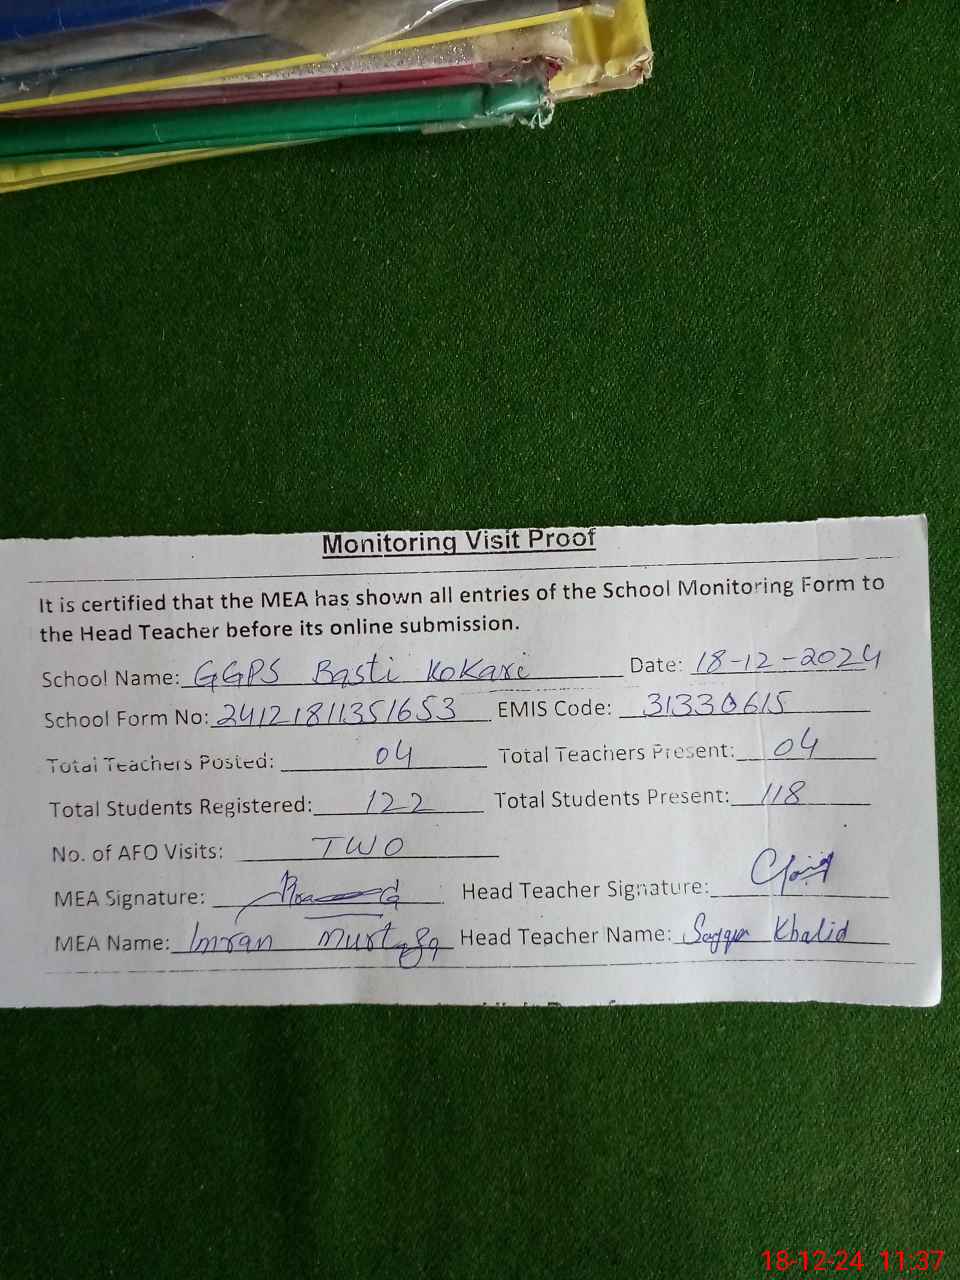 Monitoring Visit Proof
It is certified that the MEA has shown all entries of the School Monitoring Form to
the Head Teacher before its online submission.
School Name: GGPS Basti Kokari Date: 18-12-2024
School Form No: 24121811351653 EMIS Code: 31330615
Total Teachers Posted: 04 Total Teachers Present: 04
Total Students Registered: 122 Total Students Present: 118
No. of AFO Visits: TWO
MEA Signature: Head Teacher Signature:
MEA Name: Imran Murtaza Head Teacher Name: Khalid
18-12-24 11:37